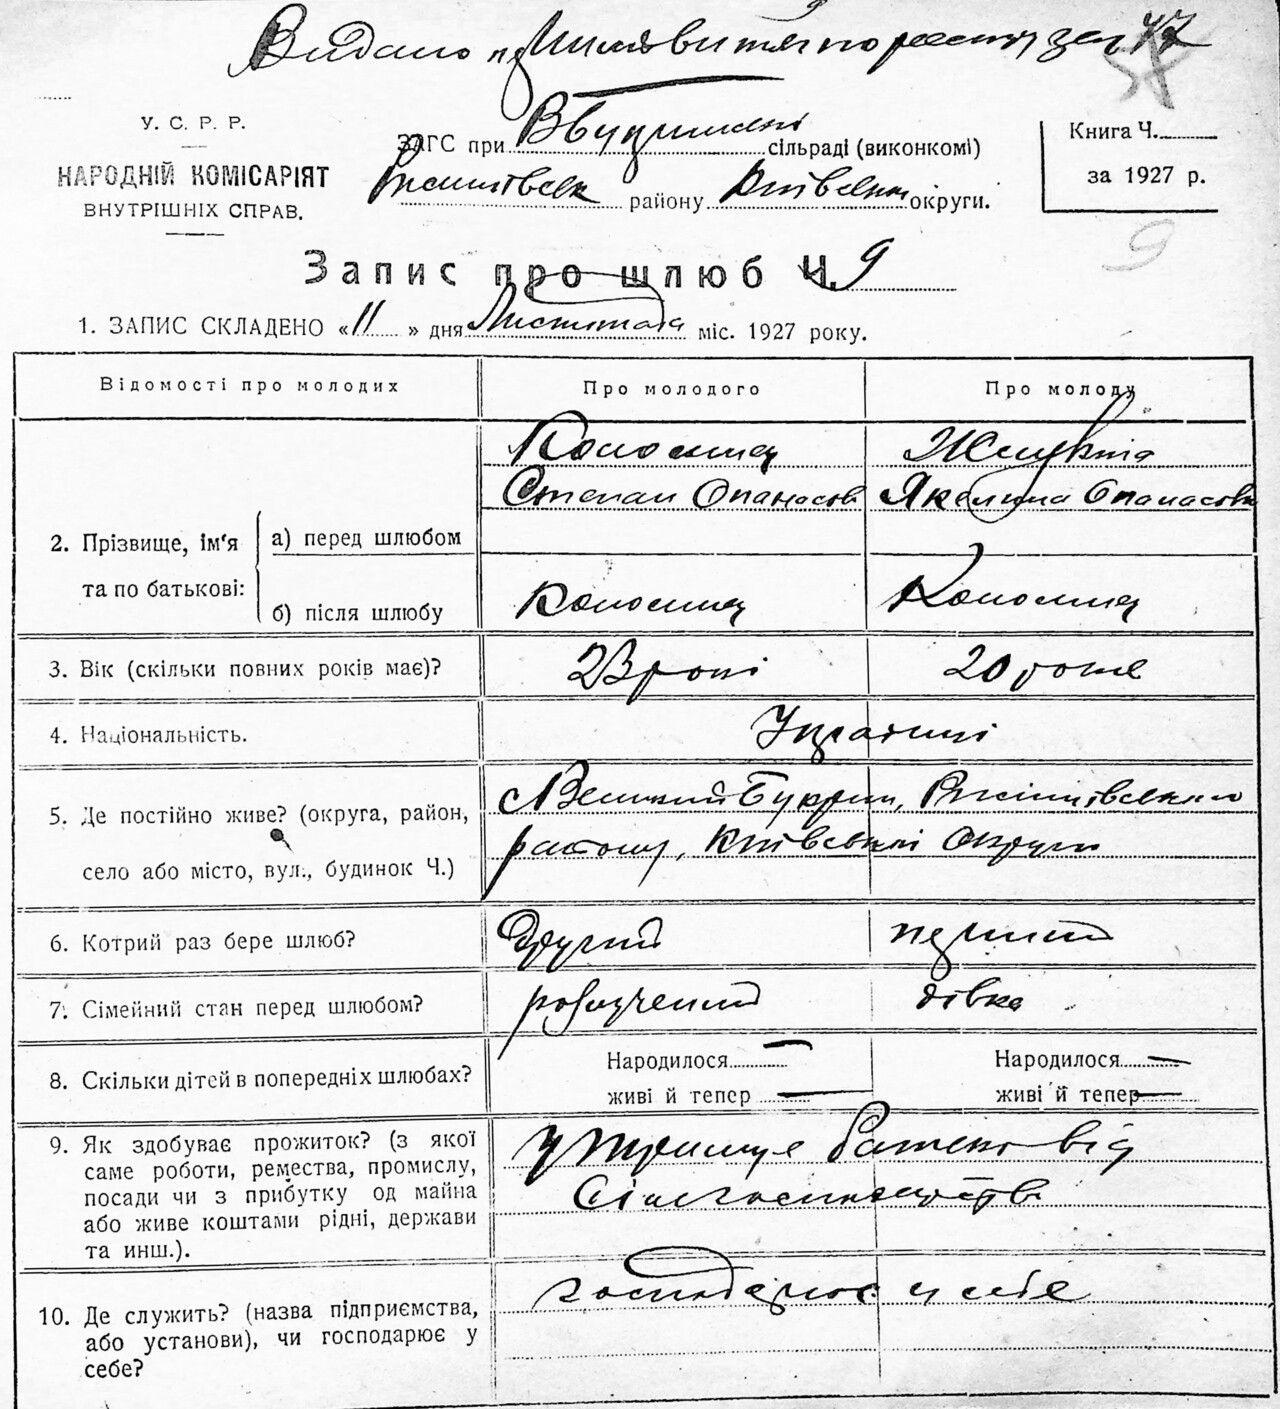 Видано по реєстру за 47
У. С. Р. Р.
НАРОДНІЙ КОМІСАРІЯТ
ВНУТРІШНІХ СПРАВ.
ЗАГС при В Букринські сільраді (виконкомі)
Ржищівськ району Київськ округи.
Книга Ч.
за 1927 р.
9
Запис про шлюб Ч. 9
1. ЗАПИС СКЛАДЕНО « 11 » дня Листопада міс. 1927 року.
Відомості про молодих
Про молодого
Про молоду
2. Прізвище, ім'я та по батькові:
а) перед шлюбом
Коломиєц
Степан Опанасов
Жлукта
Якелина Опанасовн
б) після шлюбу
Коломиец
Коломиец
3. Вік (скільки повних років має)?
23 роки
20 років
4. Національність.
Українці
5. Де постійно живе? (округа, район,
село або місто, вул., будинок Ч.)
с Великий Букрин, Ржищівського
району, Київської Округи
6. Котрий раз бере шлюб?
другий
перший
7. Сімейний стан перед шлюбом?
розлучений
дівка
8. Скільки дітей в попередніх шлюбах?
Народилося —
живі й тепер —
Народилося —
живі й тепер —
9. Як здобуває прожиток? (з якої
саме роботи, ремества, промислу,
посади чи з прибутку од майна
або живе коштами рідні, держави
та инш.).
батьків від
сільгосподарства
10. Де служить? (назва підприємства,
або установи), чи господарює у
себе?
господарює у себе